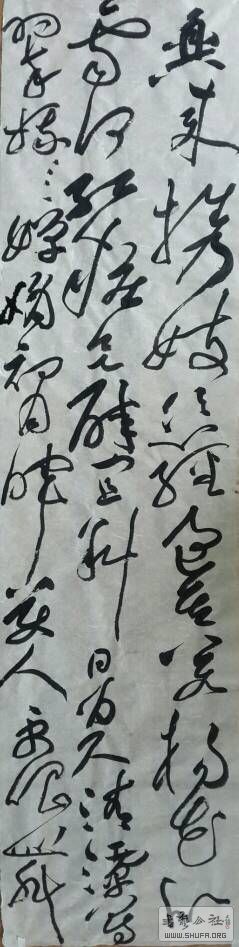 興来携妓恣經過其若楊花似
雪何紅妝欲醉宜斜日百尺清潭寫
翠娥〻〻嬋娟初月暉美人更唱舞羅
书艺公社
WWW.SHUFA.ORG